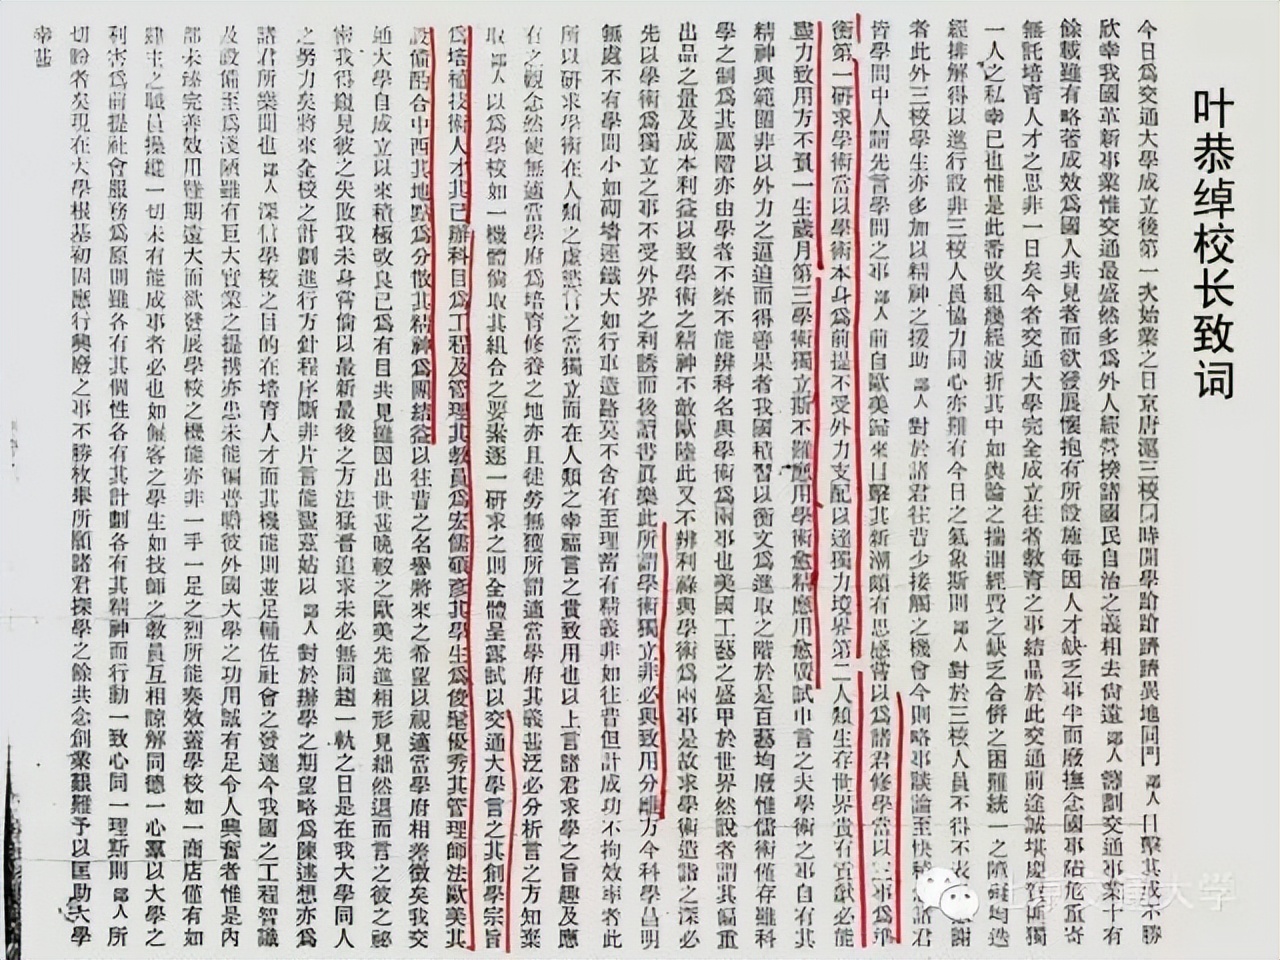 叶恭绰校长致词
今日為交通大學成立後第一次始業之日京唐滬三校同時開學蹌蹌躋躋異地同門鄙人目擊其成不勝
欣幸我國革新事業惟交通最盛然多為外人經營揆諸國民自治之義相去尚遠鄙人籌劃交通事業十有
餘載雖有略著成效為國人共見者而欲發展懷抱有所設施每因人才缺乏事半而廢撫念國事阽危重寄
無託培育人才之思非一日矣今者交通大學完全成立往者教育之事結晶於此交通前途誠堪慶賀獨
一人之私幸已也惟是此番改組幾經波折其中如輿論之揣測經費之缺乏合併之困難統一之障礙均迭
經排解得以進行設非三校人員協力同心亦難有今日之氣象斯則鄙人對於三校人員不得不表謝
者此外三校學生亦多加以精神之援助鄙人對於諸君往昔少接觸之機會今則略事談論至快諸君
皆學問中人請先言學問之事鄙人前自歐美歸來目擊其新潮頗有思感嘗以為諸君修學當以三事為準
衡第一研求學術當以學術本身為前提不受外力支配以達獨力境界第二人類生存世界貴有貢獻必能
盡力致用方不負一生歲月第三學術獨立斯不難應用學術愈精應用愈廣試申言之夫學術之事自有其
精神與範圍非以外力之逼迫而得善果者我國積習以衡文為進取之階於是百藝均廢惟儒術僅存雖科
學之制為其厲階亦由學者不察不能辨科名與學術為兩事也美國工藝之盛甲於世界然說者謂其偏重
出品之量及成本利益以致學術之精神不敵歐陸此又不辨利祿與學術為兩事是故求學術造詣之深必
先以學術為獨立之事不受外界之利誘而後讀書真樂此所謂學術獨立非必與致用分離方今科學昌明
無處不有學問小如砌墻運鐵大如行車造路莫不含有至理密有精義非如往昔但計成功不拘效率者此
所以研求學術在人類之虛慾言之當獨立而在人類之幸福言之貴致用也以上言諸君求學之旨趣及應
有之觀念然使無適當學府為培育修養之地亦且徒勞無獲所謂適當學府其義甚泛必分析言之方知棄
取鄙人以為學校如一機體倘取其組合之要素逐一研求之則全體呈露試以交通大學言之其創學宗旨
為培植技術人才其已辦科目為工程及管理其教員為宏儒碩彥其學生為俊髦優秀其管理師法歐美其
設備酌合中西其地點為分散其精神為團結益以往昔之名譽將來之希望以視適當學府相差微矣我交
通大學自成立以來積極改良已為有目共見雖因出世甚晚較之歐美先進相形見絀然退而言之彼之祕
密我得窺見彼之失敗我未身嘗倘以最新最後之方法猛晉追求未必無同趨一軌之日是在我大學同人
之努力矣將來全校之計劃進行方針程序斷非片言能盡茲姑以鄙人對於辦學之期望略為陳述想亦為
諸君所樂聞也鄙人深信學校之目的在培育人才而其機能則並足輔佐社會之發達今我國之工程智識
及設備至為淺陋雖有巨大實業之提攜亦患未能徧普瞻彼外國大學之功用誠有足令人興奮者惟是內
部未臻完善效用難期遠大而欲發展學校之機能亦非一手一足之烈所能奏效蓋學校如一商店僅有如
肆主之職員操縱一切未有能成事者必也如僱客之學生如技師之教員互相諒解同德一心羣以大學之
利害為前提社會服務為原則雖各有其個性各有其計劃各有其精神而行動一致心同一理斯則鄙人所
切盼者矣現在大學根基初固應行興廢之事不勝枚舉所願諸君探學之餘共念創業艱難予以匡助大學
幸甚
上海交通大学